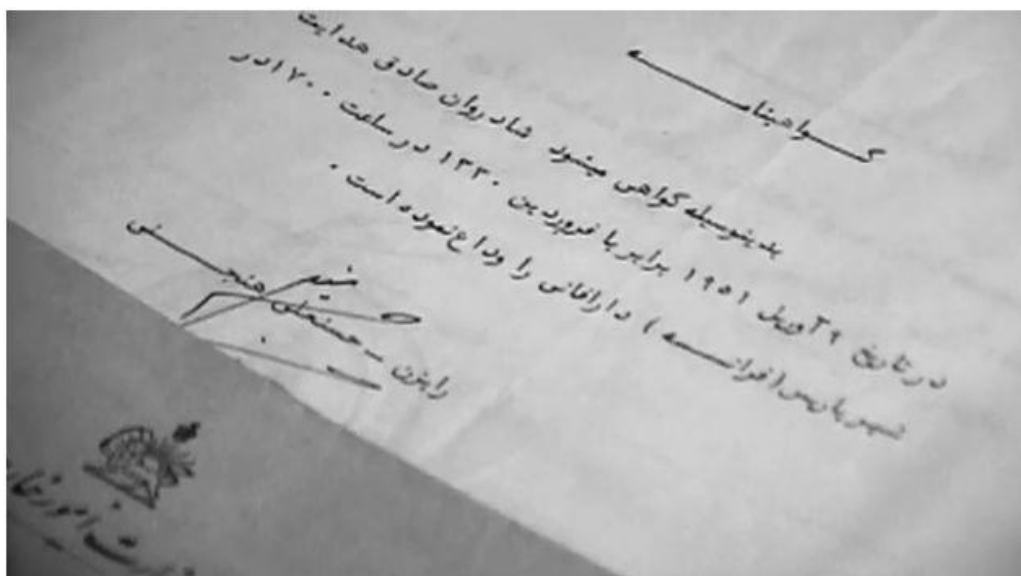 گواهینامه
بدینوسیله گواهی میشود شادروان صادق هدایت
در تاریخ ۹ آوریل ۱۹۵۱ برابر با فروردین ۱۳۳۰ در ساعت ۱۷۰۰ در
شهر پاریس (فرانسه) دارفانی را وداع نموده است.
حسنعلی
امور خار